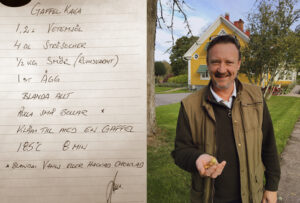 GAFFEL KAKA
1,2 L VETEMJÖL
4 DL STRÖSOCKER
1/2 KG SMÖR (RUMSVARMT)
1 ST ÄGG
BLANDA ALLT
RULLA SMÅ BOLLAR
KLÄM TILL MED EN GAFFEL
185°C 8 MIN
* BLANDA I VANILJ ELLER HACKAD CHOKLAD